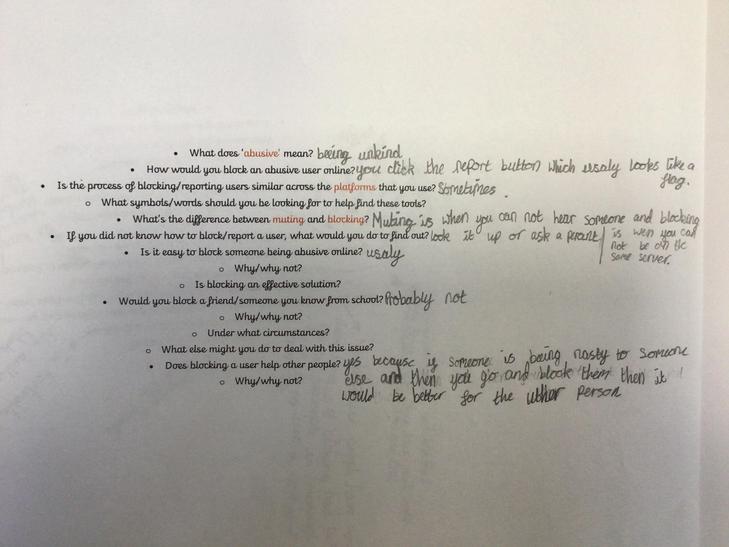 • What does 'abusive' mean? beeing unkind
• How would you block an abusive user online? you click the report button which usaly looks like a flag.
• Is the process of blocking/reporting users similar across the platforms that you use? Sometimes.
o What symbols/words should you be looking for to help find these tools?
• What's the difference between muting and blocking? Muting is when you can not hear someone and blocking
is wen you can
not be on the
same server.
• If you did not know how to block/report a user, what would you do to find out? look it up or ask a perant
• Is it easy to block someone being abusive online? usaly
o Why/why not?
o Is blocking an effective solution?
• Would you block a friend/someone you know from school? Probably not
o Why/why not?
o Under what circumstances?
o What else might you do to deal with this issue?
• Does blocking a user help other people? yes because if someone is being nasty to someone
o Why/why not? else and then you go and block them then it
would be better for the uther person